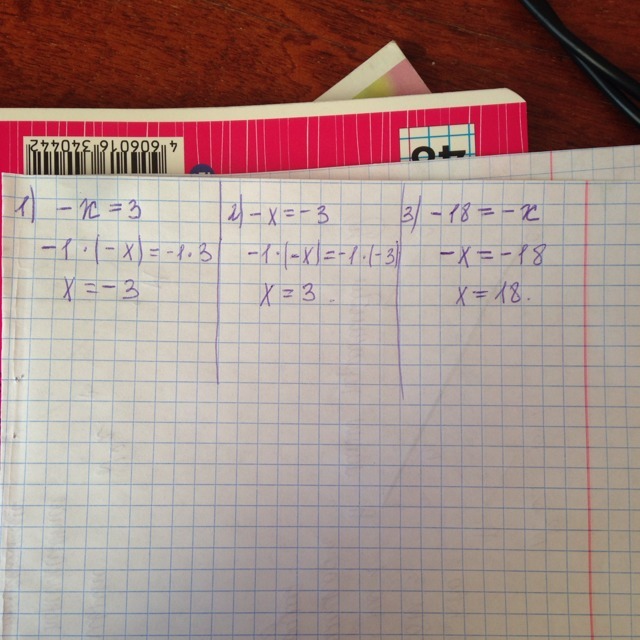 4606016 340442
48
1) -x = 3
-1 · (-x) = -1 · 3
x = -3
2) -x = -3
-1 · (-x) = -1 · (-3)
x = 3.
3) -18 = -x
-x = -18
x = 18.